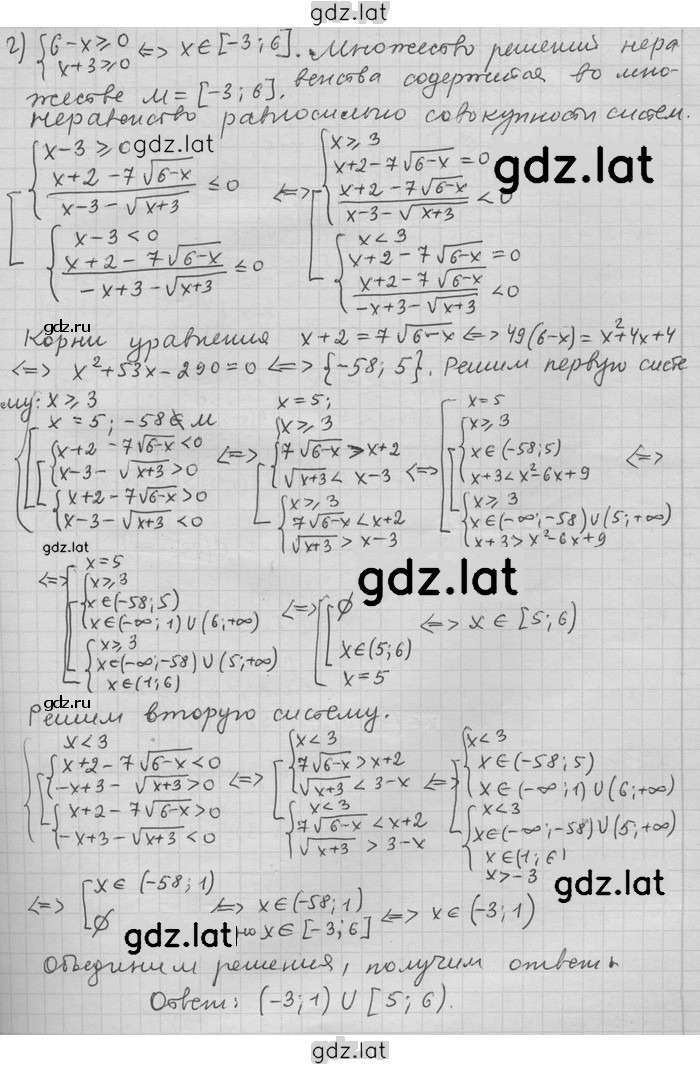 gdz.lat
2) {6-x≥0 <=> x∈[-3;6]. Множество решений нера
{x+3≥0 венства содержится во мно-
жестве M=[-3;6].
Неравенство равносильно совокупности систем.
gdz.lat
[{x-3≥0
{(x+2-7√(6-x))/(x-3-√(x+3)) ≤0
{x-3<0
{(x+2-7√(6-x))/(-x+3-√(x+3)) ≤0
<=>
[{x≥3
x+2-7√(6-x)=0
(x+2-7√(6-x))/(x-3-√(x+3)) <0
{x<3
x+2-7√(6-x)=0
(x+2-7√(6-x))/(-x+3-√(x+3)) <0
gdz.lat
gdz.lat
Корни уравнения x+2=7√(6-x) <=> 49(6-x)=x²+4x+4
<=> x²+53x-290=0 <=> {-58; 5}. Решим первую систе
му: x≥3
x=5; -58∉M
{x+2-7√(6-x)<0
{x-3-√(x+3)>0
{x+2-7√(6-x)>0
{x-3-√(x+3)<0
<=>
x=5;
{x≥3
7√(6-x)>x+2
√(x+3)<x-3
{x≥3
7√(6-x)<x+2
√(x+3)>x-3
<=>
x=5
{x≥3
x∈(-58;5)
x+3<x²-6x+9
{x≥3
x∈(-∞;-58)∪(5;+∞)
x+3>x²-6x+9
<=>
gdz.lat
<=>
x=5
{x≥3
x∈(-58;5)
x∈(-∞;1)∪(6;+∞)
{x≥3
x∈(-∞;-58)∪(5;+∞)
x∈(1;6)
<=>
[∅
x∈(5;6)
x=5
<=> x∈[5;6)
gdz.lat
gdz.lat
Решим вторую систему.
{x<3
{x+2-7√(6-x)<0
{-x+3-√(x+3)>0
{x+2-7√(6-x)>0
{-x+3-√(x+3)<0
<=>
{x<3
7√(6-x)>x+2
√(x+3)<3-x
{x<3
7√(6-x)<x+2
√(x+3)>3-x
<=>
{x<3
x∈(-58;5)
x∈(-∞;1)∪(6;+∞)
{x<3
x∈(-∞;-58)∪(5;+∞)
x∈(1;6)
x>-3
gdz.lat
<=> [x∈(-58;1)
∅
<=> x∈(-58;1)
но x∈[-3;6]
<=> x∈(-3;1)
gdz.lat
Объединим решения, получим ответ
Ответ: (-3;1)∪[5;6).
gdz.lat